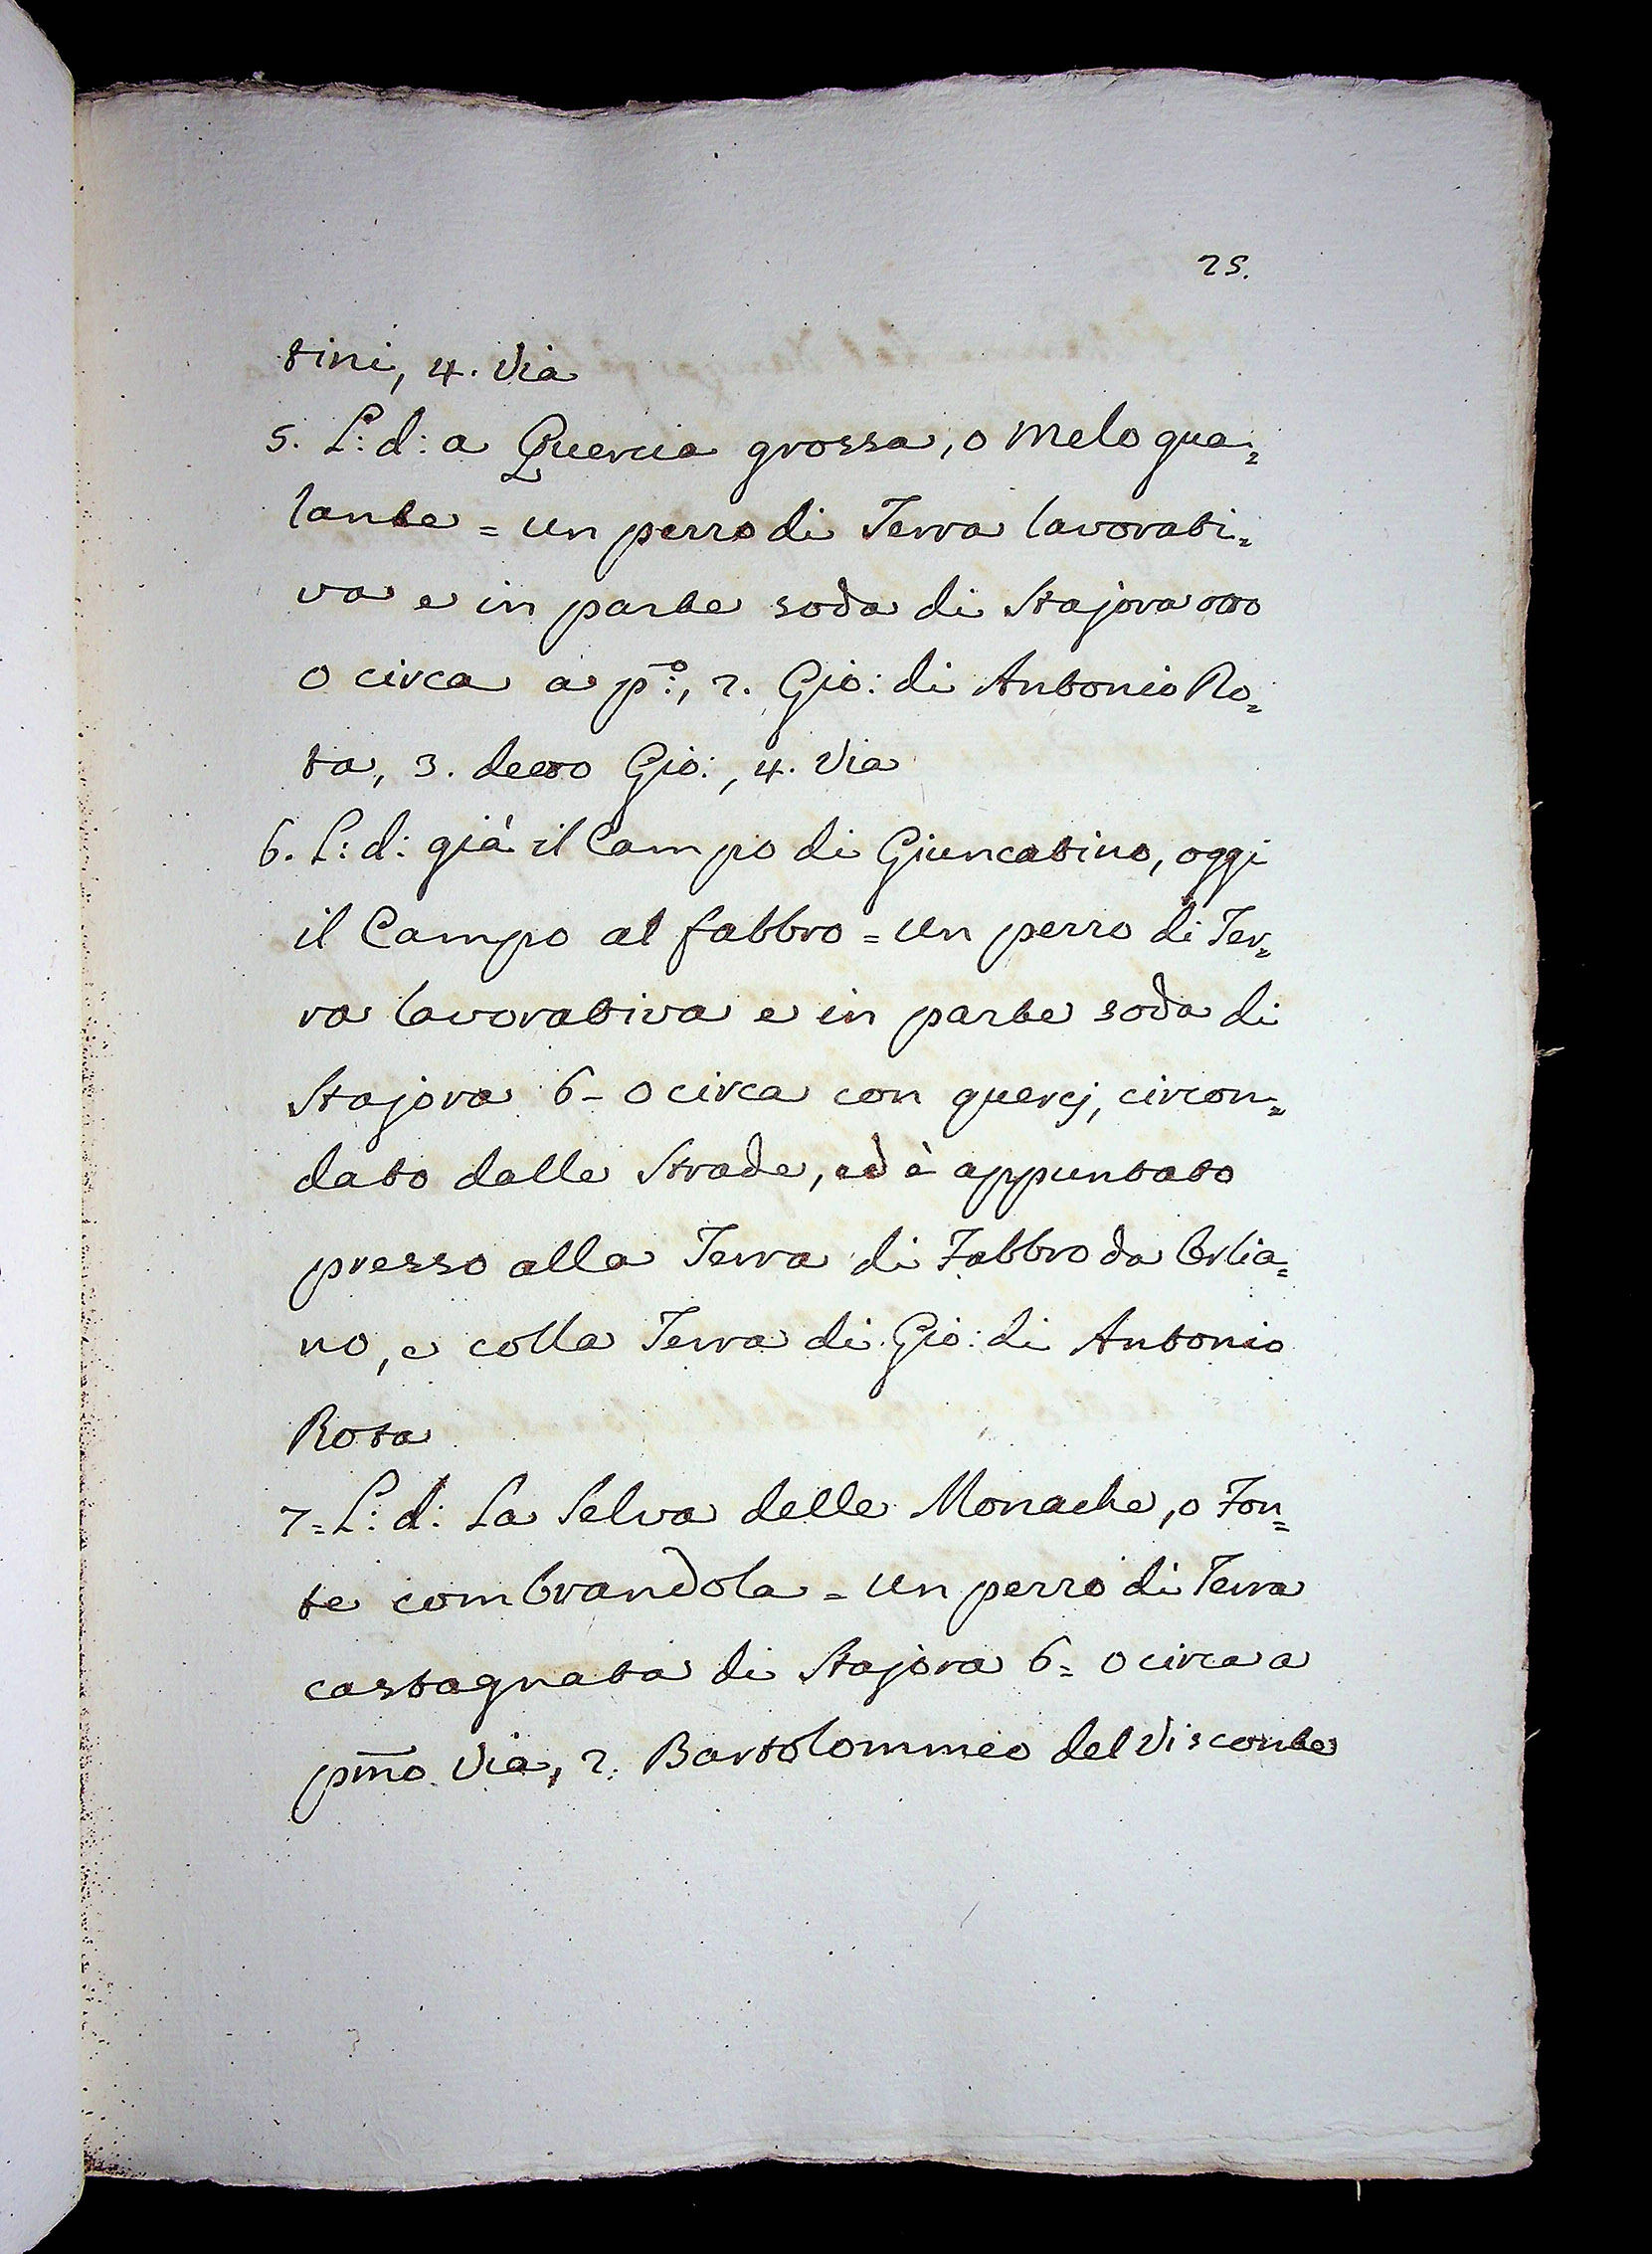 25.
tini, 4. Via
5. L: d: a Quercia grossa, o Melo gua=
lante = un pezzo di Terra lavorati=
va e in parte soda di Stajora otto
o circa a p:º, 2. Gio: di Antonio Ro=
ta, 3. detto Gio:, 4. Via
6. L: d: già il Campo di Giuncatino, oggi
il Campo al fabbro = un pezzo di Ter=
ra lavorativa e in parte soda di
Stajora 6- o circa con quercj, circon=
dato dalle Strade, ed è appuntato
presso alla Terra di Fabbro da Orlia=
no, e colla Terra di Gio: di Antonio
Rota
7= L: d: La Selva delle Monache, o Fon=
te combrandola = un pezzo di Terra
castagnata di Stajora 6= o circa a
pmo Via, 2. Bartolommeo del Visconte